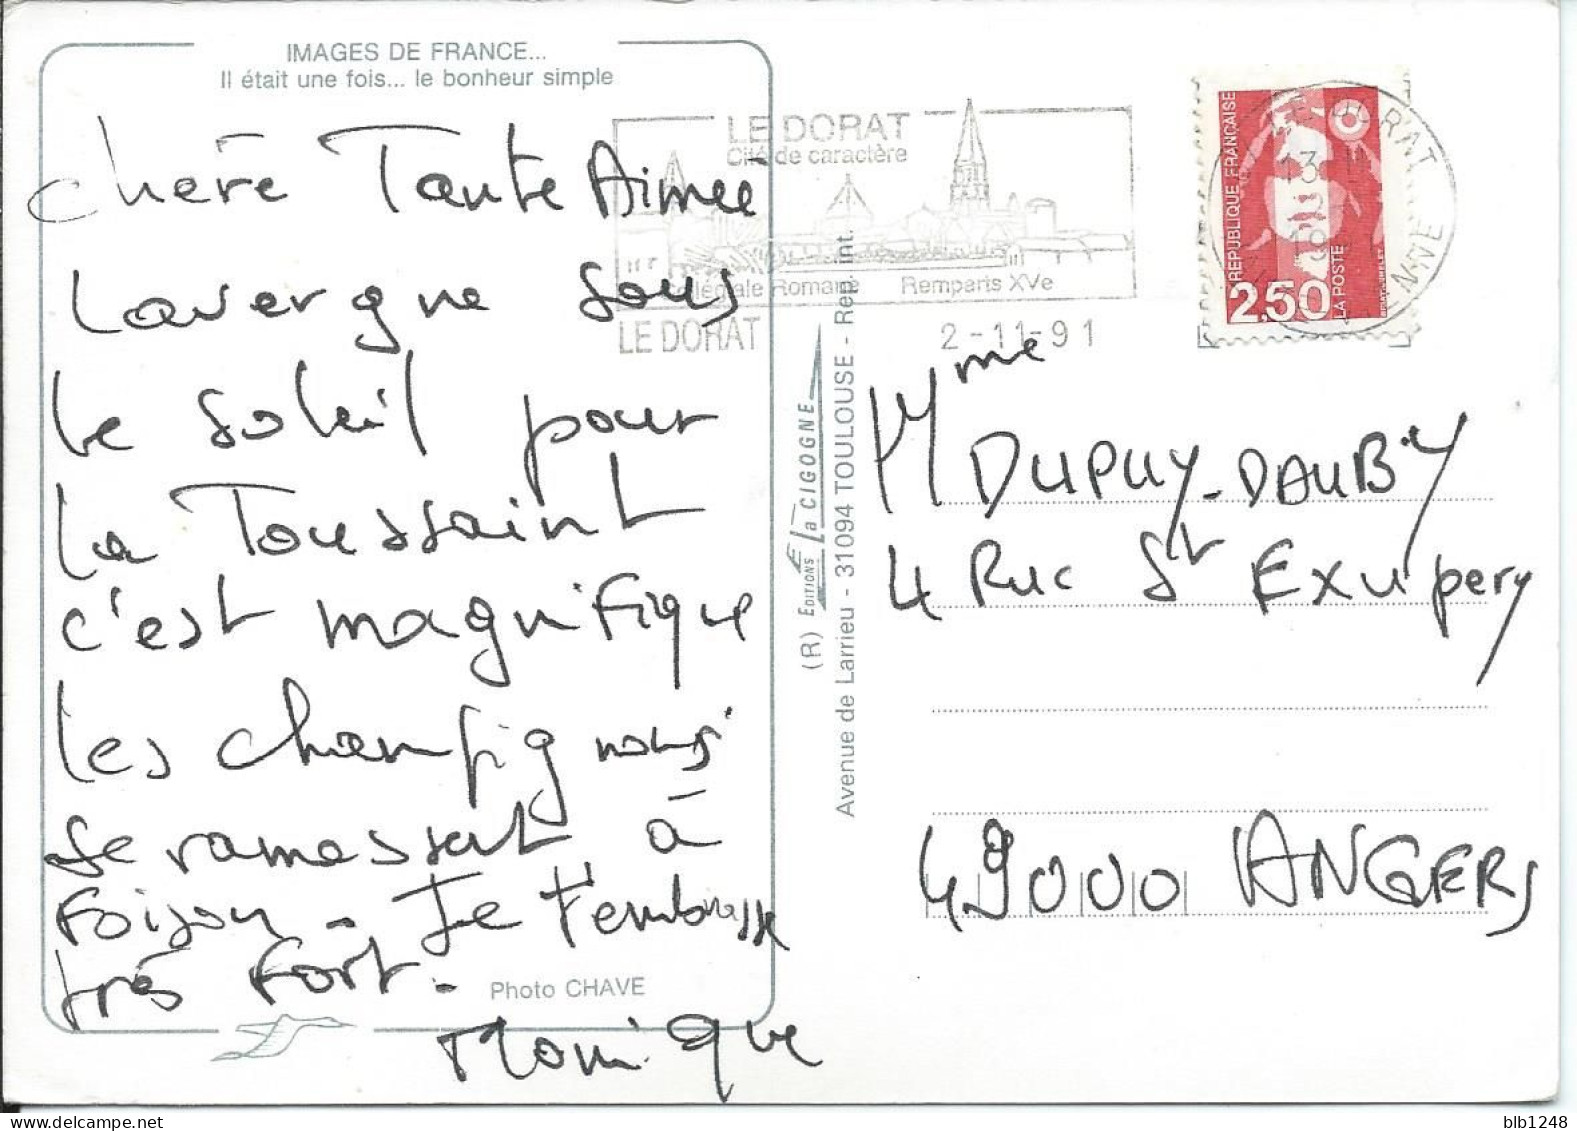 IMAGES DE FRANCE...
Il était une fois... le bonheur simple
chère Tante Aimée
Lavergne sous
le soleil pour
la Toussaint
c'est magnifique
les champignons
se ramassent à
foison - Je t'embrasse
très fort -
Monique
Photo CHAVE
LE DORAT
Cité de caractère
collégiale Romane Remparts XVe
LE DORAT 2-11-91
RÉPUBLIQUE FRANÇAISE
2,50
LA POSTE
LE DORAT
13 H
VIENNE
(R) EDITIONS La CIGOGNE
Avenue de Larrieu - 31094 TOULOUSE - Rep. int.
Mme
DUPUY-DAUBY
4 Rue St Exupery
49000 ANGERS
blb1248